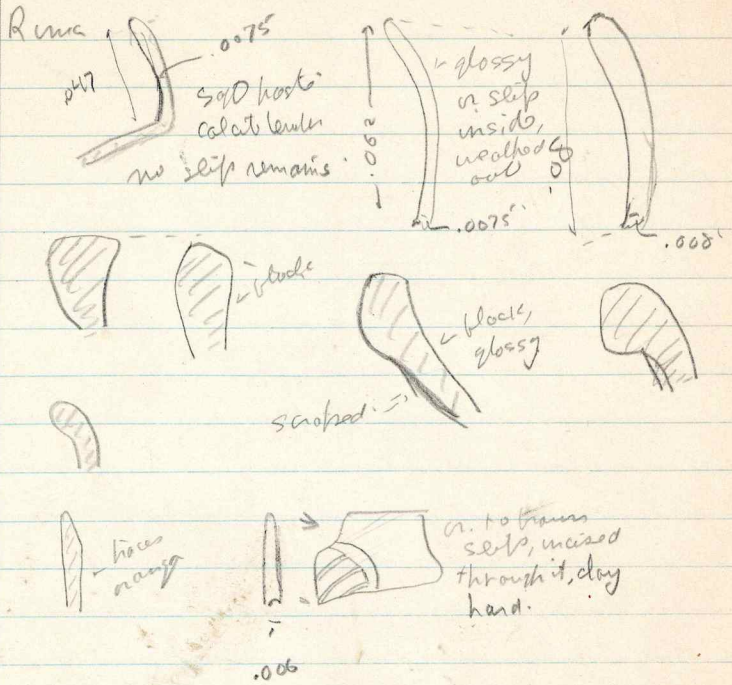 Rima
.0075
.047
no slip remains
glossy
or slip
inside,
weathered
out
.062
.0075
.08
.008
black
black,
glossy
scraped
traces
orange
or. to brown
slip, incised
through it, clay
hard.
.006